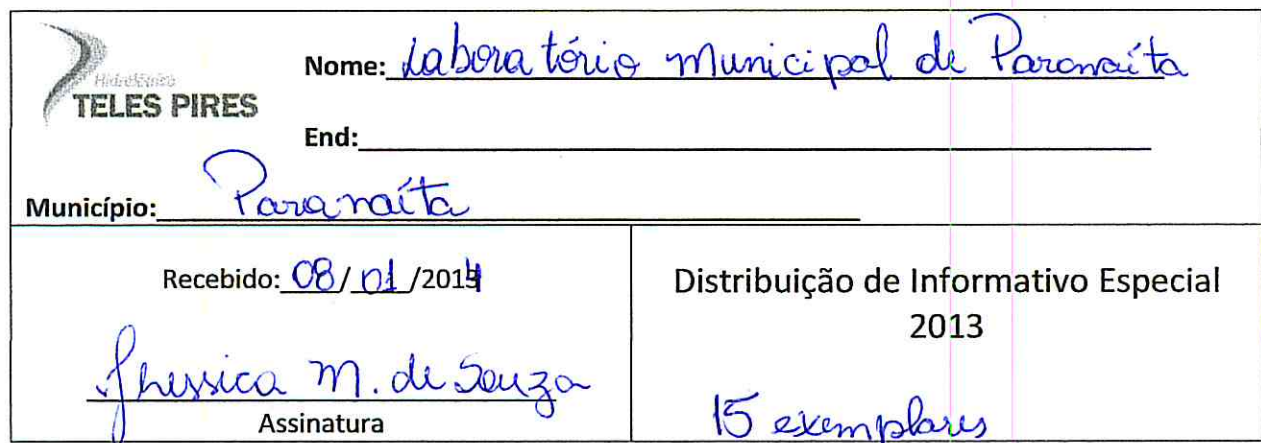 Hidrelétrica
TELES PIRES
Nome: Laboratório Municipal de Paranaíta
End:
Município: Paranaíta
Recebido: 08/01/2014
Jhessica M. de Souza
Assinatura
Distribuição de Informativo Especial
2013
15 exemplares